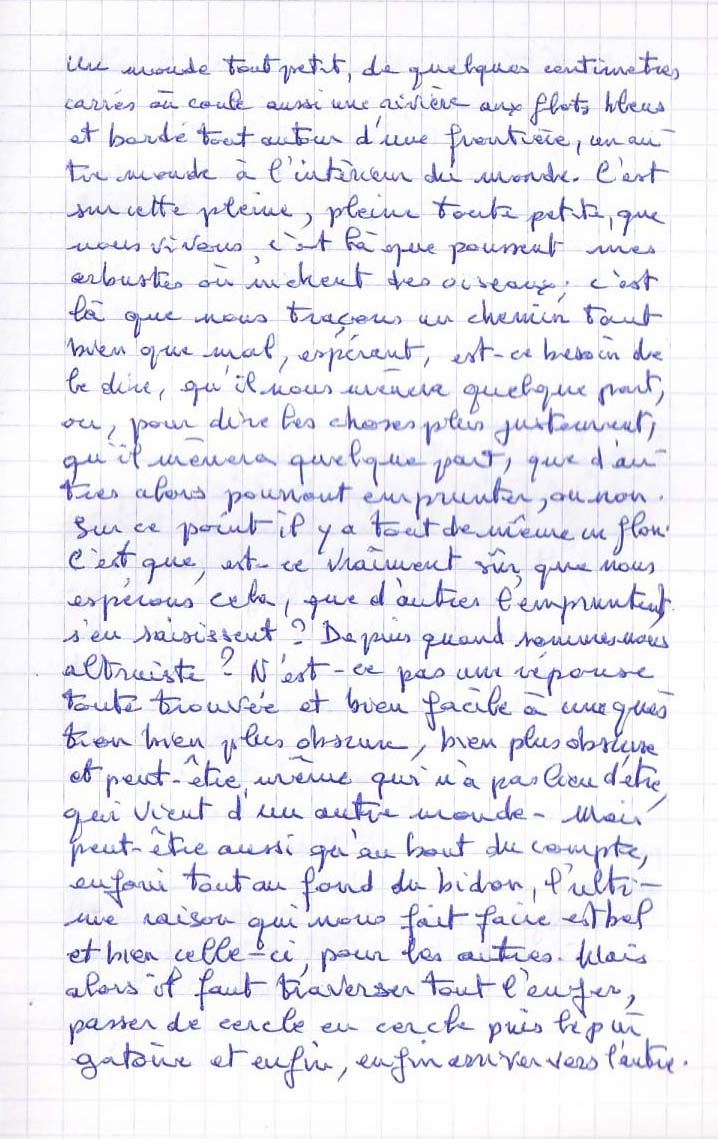 Un monde tout petit, de quelques centimètres
carrés où coule aussi une rivière aux flots bleus
et bordé tout autour d'une frontière, un au-
tre monde à l'intérieur du monde. C'est
sur cette pleine, pleine toute petite, que
nous vivons, c'est là que poussent mes
arbustes où nichent des oiseaux; c'est
là que nous traçons un chemin tant
bien que mal, espérant, est-ce besoin de
le dire, qu'il nous mènera quelque part,
ou, pour dire les choses plus justement,
qu'il mènera quelque part, que d'au-
tres alors pourront emprunter, ou non.
Sur ce point il y a tout de même un flou.
C'est que, est-ce vraiment sûr, que nous
espérons cela, que d'autres l'empruntent,
s'en saisissent ? Depuis quand sommes-nous
altruiste ? N'est-ce pas une réponse
toute trouvée et bien facile à une ques
tion bien plus obscure, bien plus obscure
et peut-être même qui n'a pas lieu d'être,
qui vient d'un autre monde - Mais
peut-être aussi qu'au bout du compte,
enfoui tout au fond du bidon, l'ulti-
me raison qui nous fait faire est bel
et bien celle-ci, pour les autres. Mais
alors il faut traverser tout l'enfer,
passer de cercle en cercle puis le pur
gatoire et enfin, enfin arriver vers l'autre.